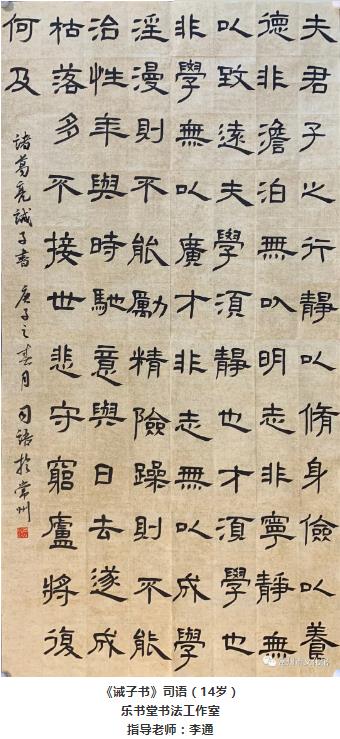 夫君子之行靜以脩身儉以養
德非澹泊無以明志非寧靜無
以致遠夫學須靜也才須學也
非學無以廣才非志無以成學
淫漫則不能勵精險躁則不能
治性年與時馳意與日去遂成
枯落多不接世悲守窮廬將復
何及
諸葛亮誡子書 庚子之春月 司語於常州
《诫子书》司语（14岁）
乐书堂书法工作室
指导老师：李通